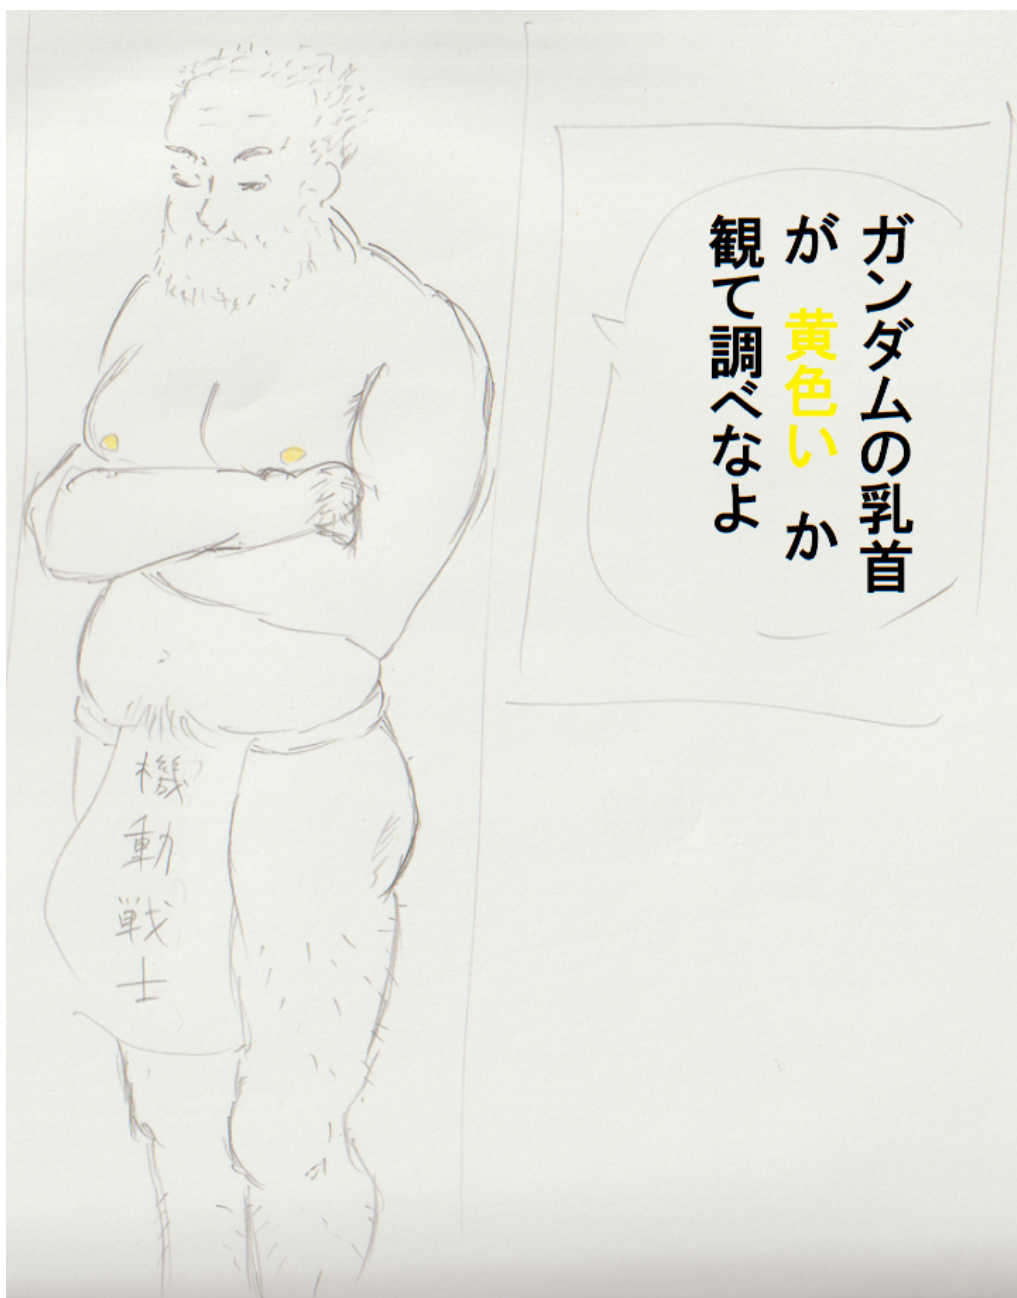 ガンダムの乳首
が 黄色い か
観て調べなよ
機動戦士